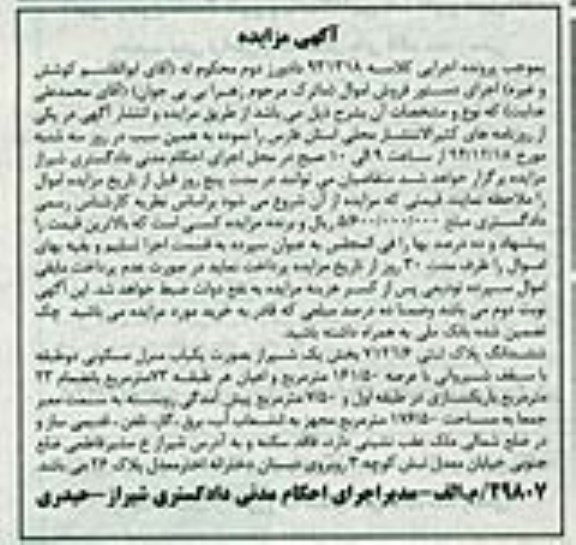 آگهی مزایده
بموجب پرونده اجرایی کلاسه ۹۲۱۳۱۸ دادبرز دوم محکوم له (آقای ابوالقاسم کوشش
و غیره) اجرای دستور فروش اموال (ماترک مرحوم زهرا بی بی جوان) (آقای محمدعلی
عنایت) که نوع و مشخصات آن بشرح ذیل می باشد از طریق مزایده و انتشار آگهی در یکی
از روزنامه های کثیرالانتشار محلی استان فارس را نموده به همین سبب در روز سه شنبه
مورخ ۹۴/۱۲/۱۸ از ساعت ۹ الی ۱۰ صبح در محل اجرای احکام مدنی دادگستری شیراز
مزایده برگزار خواهد شد متقاضیان می توانند در مدت پنج روز قبل از تاریخ مزایده اموال
را ملاحظه نمایند قیمتی که مزایده از آن شروع می شود براساس نظریه کارشناس رسمی
دادگستری مبلغ ۵/۶۰۰/۰۰۰/۰۰۰ ریال و برنده مزایده کسی است که بالاترین قیمت را
پیشنهاد و ده درصد بها را فی المجلس به عنوان سپرده به قسمت اجرا تسلیم و بقیه بهای
اموال را ظرف مدت ۳۰ روز از تاریخ مزایده پرداخت نماید در صورت عدم پرداخت مابقی
اموال سپرده تودیعی پس از کسر هزینه مزایده به نفع دولت ضبط خواهد شد. این آگهی
نوبت دوم می باشد وضمنا ده درصد مبلغی که قادر به خرید مورد مزایده می باشید چک
تضمین شده بانک ملی به همراه داشته باشید.
ششدانگ پلاک ثبتی ۷۱۲۱/۶ بخش یک شیراز بصورت یکباب منزل مسکونی دوطبقه
با سقف شیروانی با عرصه ۱۶۱/۵۰ مترمربع و اعیان هر طبقه ۷۳مترمربع بانضمام ۲۳
مترمربع باریکسازی در طبقه اول و ۷/۵۰ مترمربع پیش آمدگی روبسته به سمت معبر
جمعا به مساحت ۱۷۶/۵۰ مترمربع مجهز به انشعاب آب، برق، گاز، تلفن، قدیمی ساز و
در ضلع شمالی ملک عقب نشینی دارد، فاقد سکنه و به آدرس شیراز خ مشیرفاطمی ضلع
جنوبی خیابان معدل نبش کوچه ۳ روبروی دبستان دخترانه اخترمعدل پلاک ۲۶ می باشد.
۲۹۸۰۷/م‌الف-مدیر اجرای احکام مدنی دادگستری شیراز-حیدری